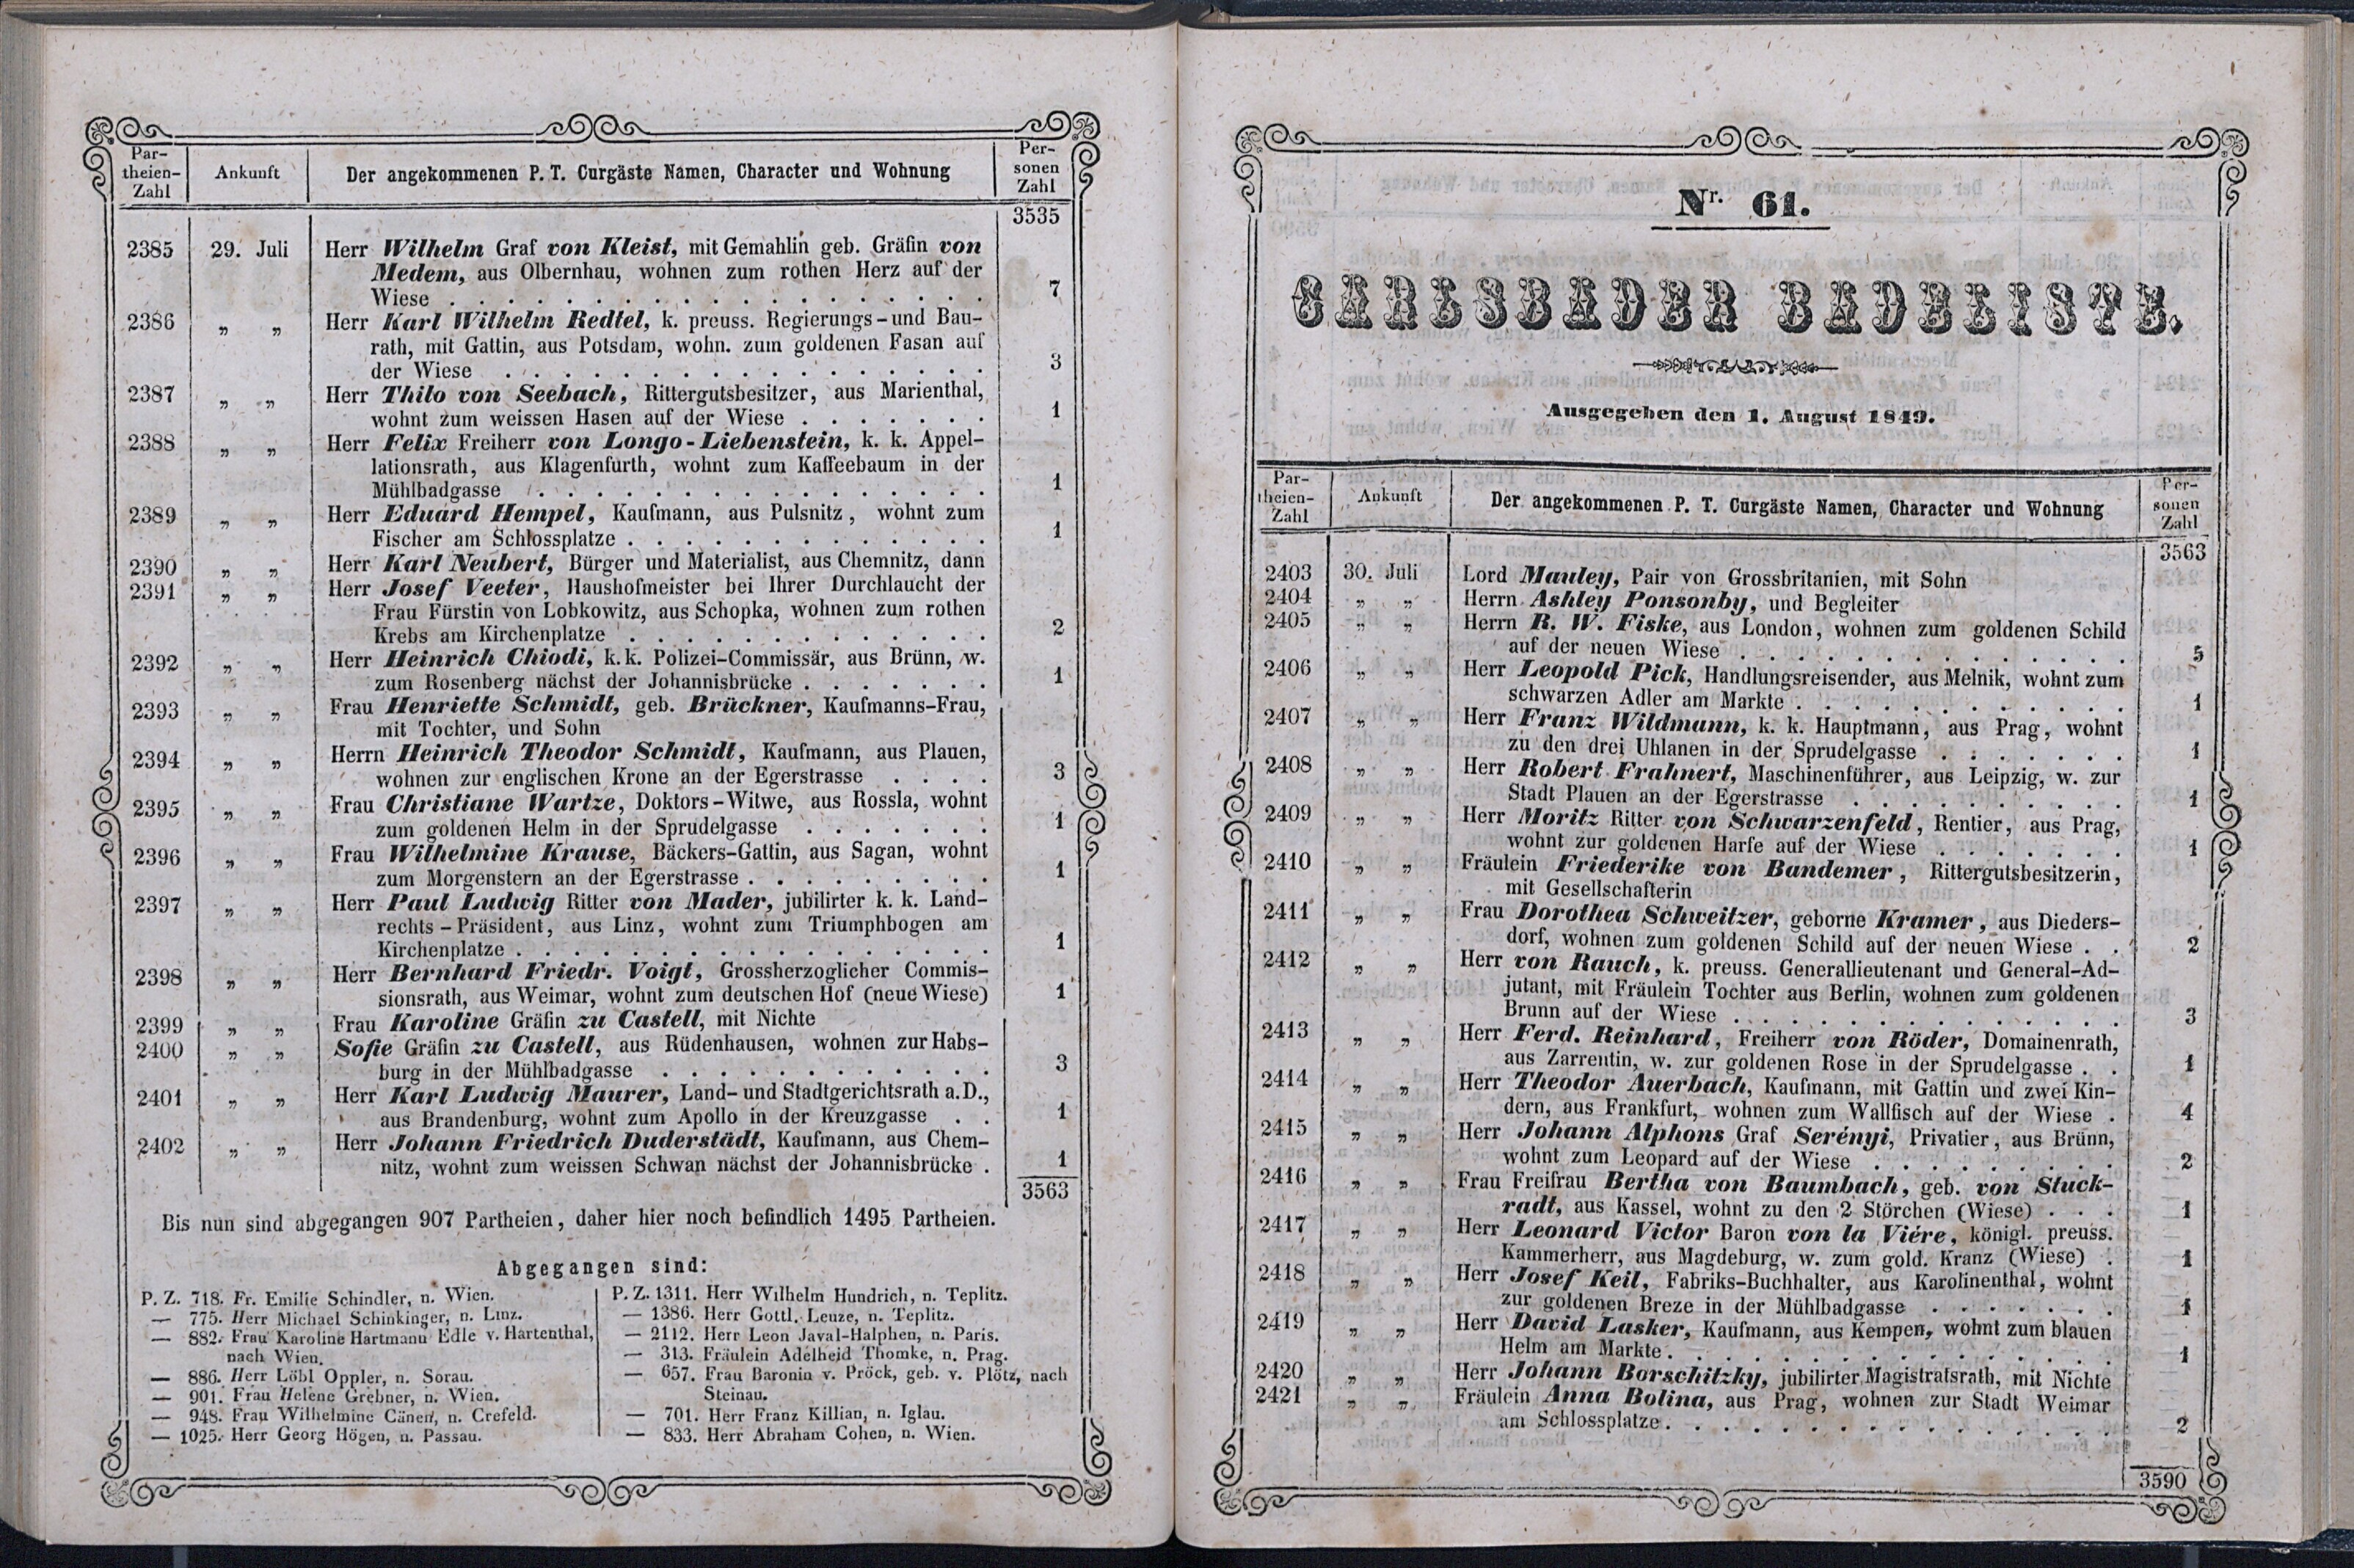 Par-
theien-
Zahl
Ankunft
Der angekommenen P. T. Curgäste Namen, Character und Wohnung
Per-
sonen
Zahl
3535
2385 29. Juli Herr Wilhelm Graf von Kleist, mit Gemahlin geb. Gräfin von
Medem, aus Olbernhau, wohnen zum rothen Herz auf der
Wiese . . . 7
2386 „ „ Herr Karl Wilhelm Redtel, k. preuss. Regierungs-und Bau-
rath, mit Gattin, aus Potsdam, wohn. zum goldenen Fasan auf
der Wiese . . . 3
2387 „ „ Herr Thilo von Seebach, Rittergutsbesitzer, aus Marienthal,
wohnt zum weissen Hasen auf der Wiese . . . 1
2388 „ „ Herr Felix Freiherr von Longo-Liebenstein, k. k. Appel-
lationsrath, aus Klagenfurth, wohnt zum Kaffeebaum in der
Mühlbadgasse . . . 1
2389 „ „ Herr Eduard Hempel, Kaufmann, aus Pulsnitz, wohnt zum
Fischer am Schlossplatze . . . 1
2390 „ „ Herr Karl Neubert, Bürger und Materialist, aus Chemnitz, dann
2391 „ „ Herr Josef Veeter, Haushofmeister bei Ihrer Durchlaucht der
Frau Fürstin von Lobkowitz, aus Schopka, wohnen zum rothen
Krebs am Kirchenplatze . . . 2
2392 „ „ Herr Heinrich Chiodi, k. k. Polizei-Commissär, aus Brünn, w.
zum Rosenberg nächst der Johannisbrücke . . . 1
2393 „ „ Frau Henriette Schmidt, geb. Brückner, Kaufmanns-Frau,
mit Tochter, und Sohn
2394 „ „ Herrn Heinrich Theodor Schmidt, Kaufmann, aus Plauen,
wohnen zur englischen Krone an der Egerstrasse . . . 3
2395 „ „ Frau Christiane Wartze, Doktors-Witwe, aus Rossla, wohnt
zum goldenen Helm in der Sprudelgasse . . . 1
2396 „ „ Frau Wilhelmine Krause, Bäckers-Gattin, aus Sagan, wohnt
zum Morgenstern an der Egerstrasse . . . 1
2397 „ „ Herr Paul Ludwig Ritter von Mader, jubilirter k. k. Land-
rechts-Präsident, aus Linz, wohnt zum Triumphbogen am
Kirchenplatze . . . 1
2398 „ „ Herr Bernhard Friedr. Voigt, Grossherzoglicher Commis-
sionsrath, aus Weimar, wohnt zum deutschen Hof (neue Wiese) 1
2399 „ „ Frau Karoline Gräfin zu Castell, mit Nichte
2400 „ „ Sofie Gräfin zu Castell, aus Rüdenhausen, wohnen zur Habs-
burg in der Mühlbadgasse . . . 3
2401 „ „ Herr Karl Ludwig Maurer, Land- und Stadtgerichtsrath a. D.,
aus Brandenburg, wohnt zum Apollo in der Kreuzgasse . . 1
2402 „ „ Herr Johann Friedrich Duderstädt, Kaufmann, aus Chem-
nitz, wohnt zum weissen Schwan nächst der Johannisbrücke . 1
3563
Bis nun sind abgegangen 907 Partheien, daher hier noch befindlich 1495 Partheien.
Abgegangen sind:
P. Z. 718. Fr. Emilie Schindler, n. Wien.
— 775. Herr Michael Schinkinger, n. Linz.
— 882. Frau Karoline Hartmann Edle v. Hartenthal,
nach Wien.
— 886. Herr Löbl Oppler, n. Sorau.
— 901. Frau Helene Grebner, n. Wien.
— 948. Frau Wilhelmine Cänen, n. Crefeld.
— 1025. Herr Georg Högen, n. Passau.
P. Z. 1311. Herr Wilhelm Hundrich, n. Teplitz.
— 1386. Herr Gottl. Leuze, n. Teplitz.
— 2112. Herr Leon Javal-Halphen, n. Paris.
— 313. Fräulein Adelheid Thomke, n. Prag.
— 657. Frau Baronin v. Pröck, geb. v. Plötz, nach
Steinau.
— 701. Herr Franz Killian, n. Iglau.
— 833. Herr Abraham Cohen, n. Wien.
Nr. 61.
CARLSBADER BADELISTE.
Ausgegeben den 1. August 1849.
Par-
theien-
Zahl
Ankunft
Der angekommenen P. T. Curgäste Namen, Character und Wohnung
Per-
sonen
Zahl
3563
2403 30. Juli Lord Mauley, Pair von Grossbritanien, mit Sohn
2404 „ „ Herrn Ashley Ponsonby, und Begleiter
2405 „ „ Herrn R. W. Fiske, aus London, wohnen zum goldenen Schild
auf der neuen Wiese . . . 5
2406 „ „ Herr Leopold Pick, Handlungsreisender, aus Melnik, wohnt zum
schwarzen Adler am Markte . . . 1
2407 „ „ Herr Franz Wildmann, k. k. Hauptmann, aus Prag, wohnt
zu den drei Uhlanen in der Sprudelgasse . . . 1
2408 „ „ Herr Robert Frahnert, Maschinenführer, aus Leipzig, w. zur
Stadt Plauen an der Egerstrasse . . . 1
2409 „ „ Herr Moritz Ritter von Schwarzenfeld, Rentier, aus Prag,
wohnt zur goldenen Harfe auf der Wiese . . . 1
2410 „ „ Fräulein Friederike von Bandemer, Rittergutsbesitzerin,
mit Gesellschafterin
2411 „ „ Frau Dorothea Schweitzer, geborne Kramer, aus Dieders-
dorf, wohnen zum goldenen Schild auf der neuen Wiese . . 2
2412 „ „ Herr von Rauch, k. preuss. Generallieutenant und General-Ad-
jutant, mit Fräulein Tochter aus Berlin, wohnen zum goldenen
Brunn auf der Wiese . . . 3
2413 „ „ Herr Ferd. Reinhard, Freiherr von Röder, Domainenrath,
aus Zarrentin, w. zur goldenen Rose in der Sprudelgasse . . 1
2414 „ „ Herr Theodor Auerbach, Kaufmann, mit Gattin und zwei Kin-
dern, aus Frankfurt, wohnen zum Wallfisch auf der Wiese . 4
2415 „ „ Herr Johann Alphons Graf Serényi, Privatier, aus Brünn,
wohnt zum Leopard auf der Wiese . . . 2
2416 „ „ Frau Freifrau Bertha von Baumbach, geb. von Stuck-
radt, aus Kassel, wohnt zu den 2 Störchen (Wiese) . . . 1
2417 „ „ Herr Leonard Victor Baron von la Viére, königl. preuss.
Kammerherr, aus Magdeburg, w. zum gold. Kranz (Wiese) . 1
2418 „ „ Herr Josef Keil, Fabriks-Buchhalter, aus Karolinenthal, wohnt
zur goldenen Breze in der Mühlbadgasse . . . 1
2419 „ „ Herr David Lasker, Kaufmann, aus Kempen, wohnt zum blauen
Helm am Markte . . . 1
2420 „ „ Herr Johann Borschitzky, jubilirter Magistratsrath, mit Nichte
2421 „ „ Fräulein Anna Bolina, aus Prag, wohnen zur Stadt Weimar
am Schlossplatze . . . 2
3590